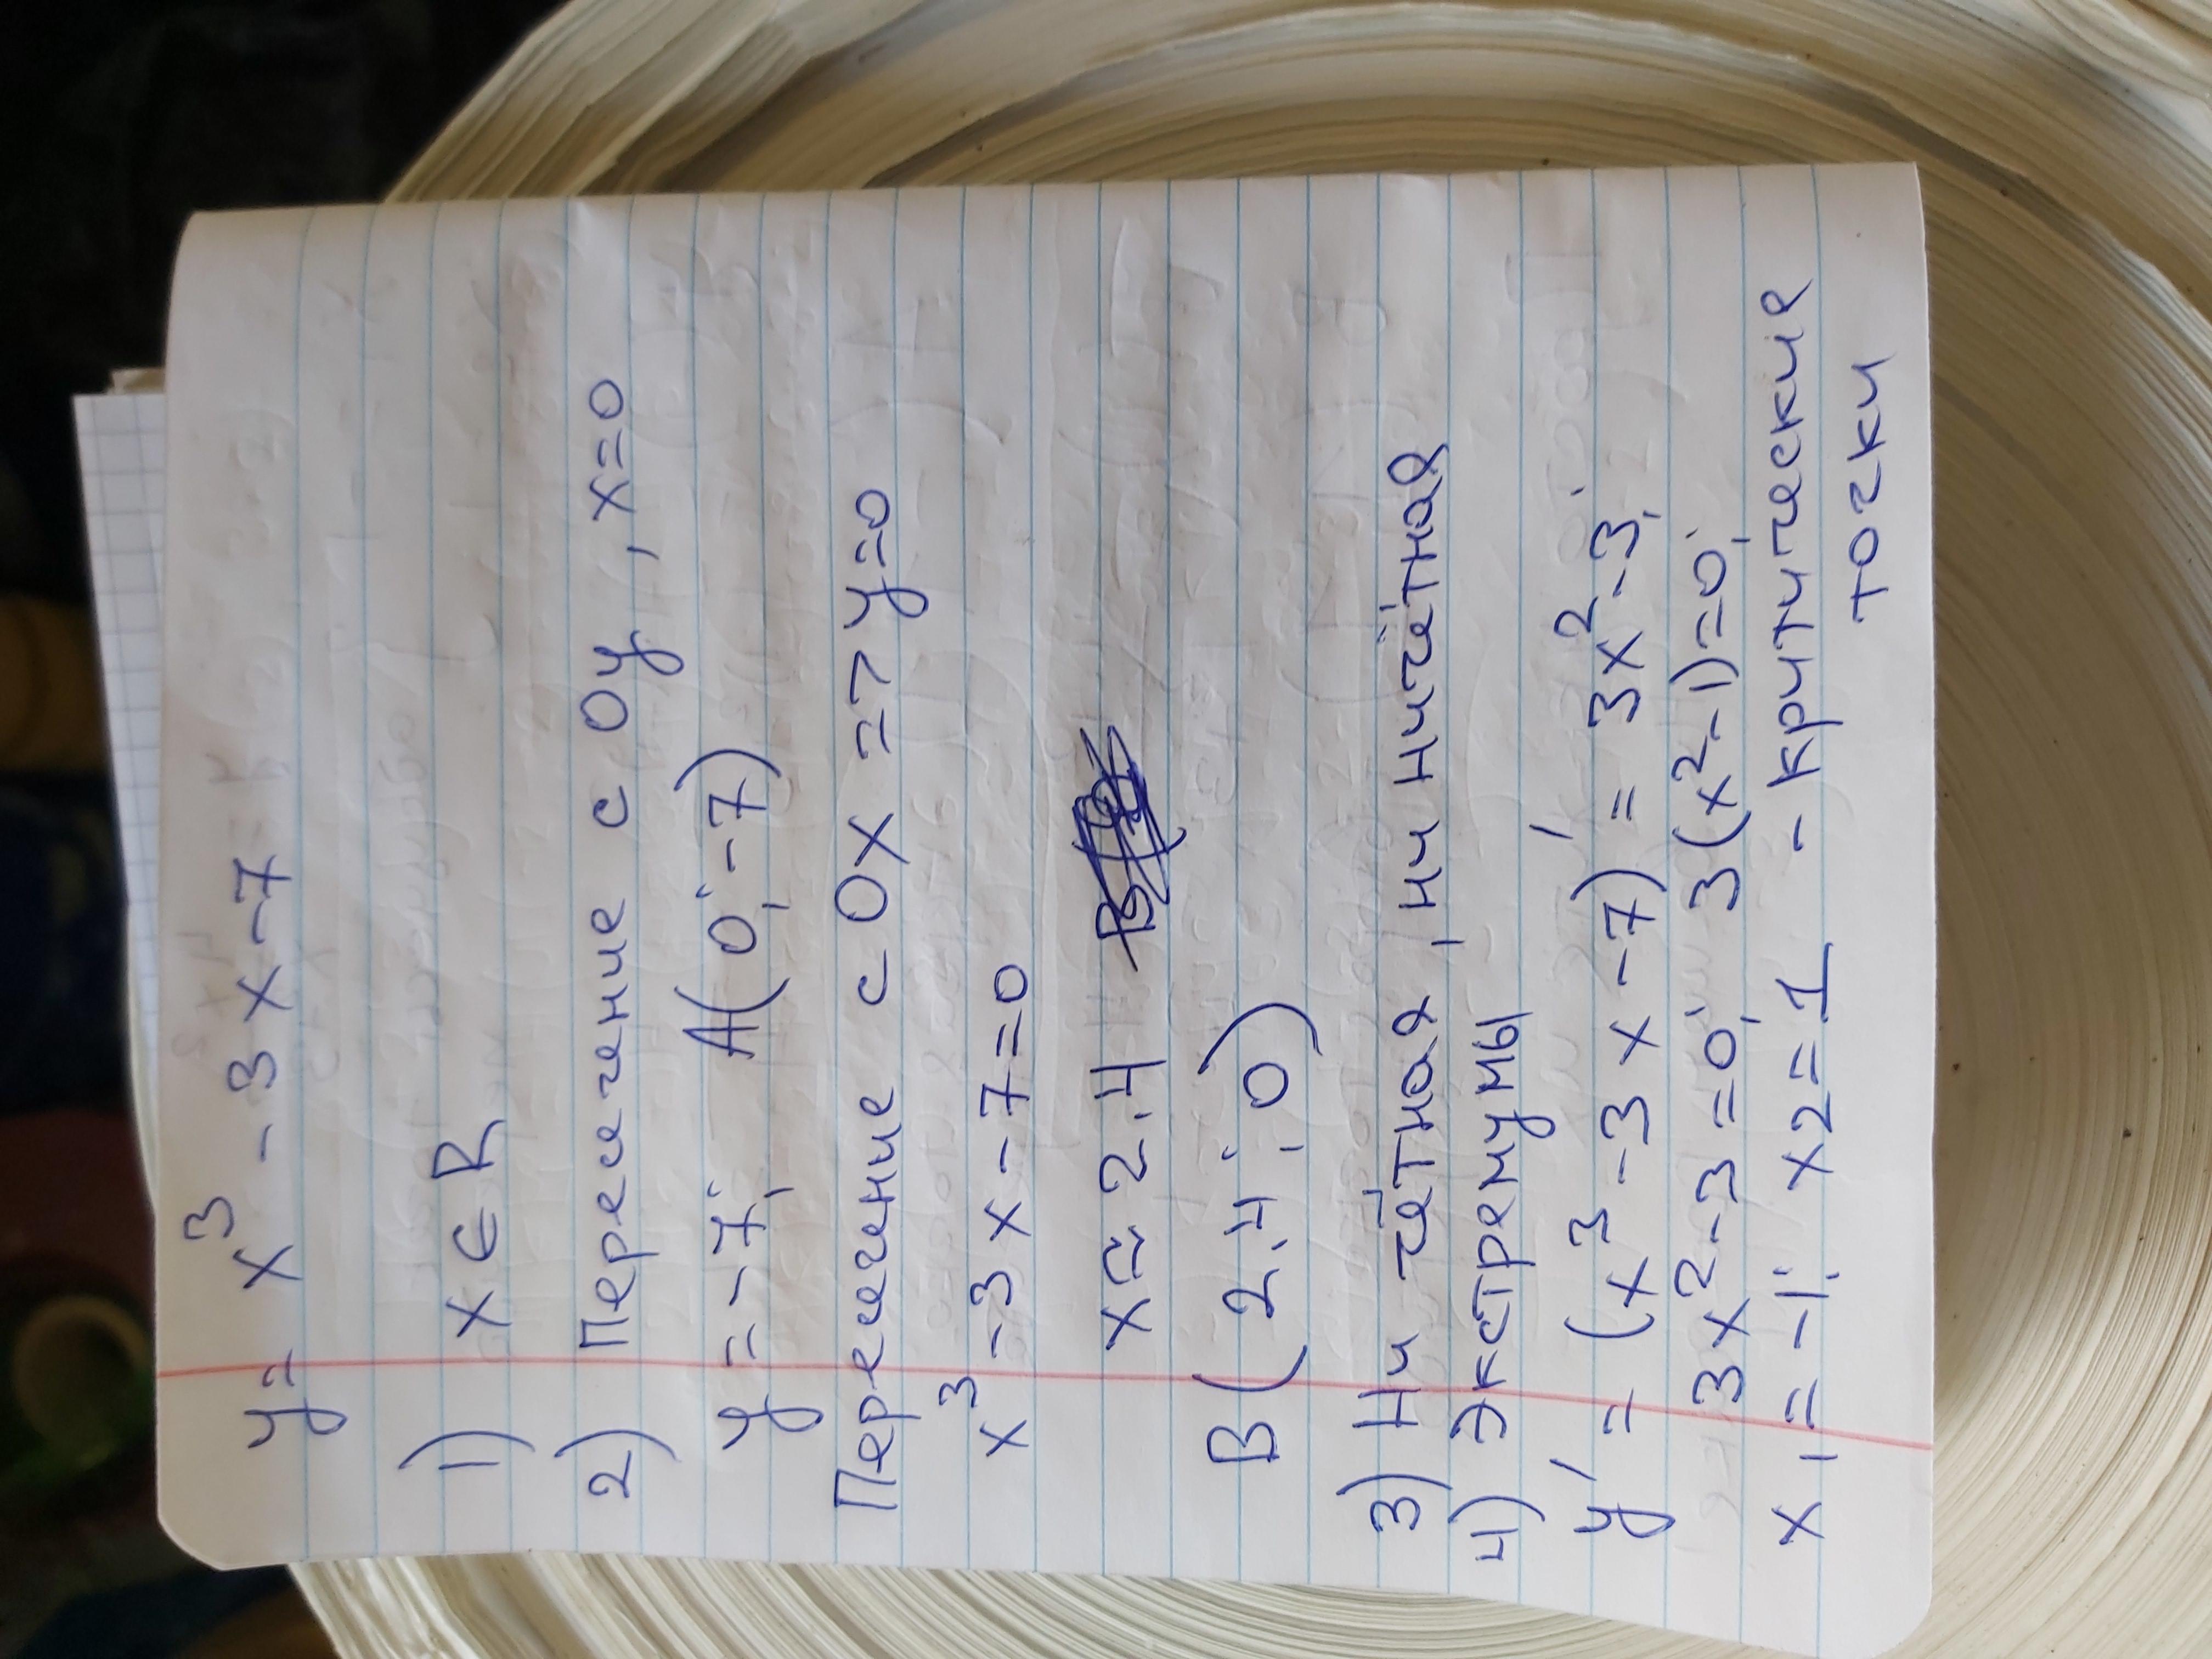 y = x³ - 3x - 7
1) x ∈ R
2) Пересечение с Oy, x=0
y = -7; A(0; -7)
Пересечение с Ox => y=0
x³ - 3x - 7 = 0
x ≈ 2.4
B(2.4; 0)
3) Ни чётная, ни ничётная
4) Экстремумы
y' = (x³ - 3x - 7)' = 3x² - 3;
3x² - 3 = 0; 3(x² - 1) = 0;
x₁ = -1; x₂ = 1 - критические
точки